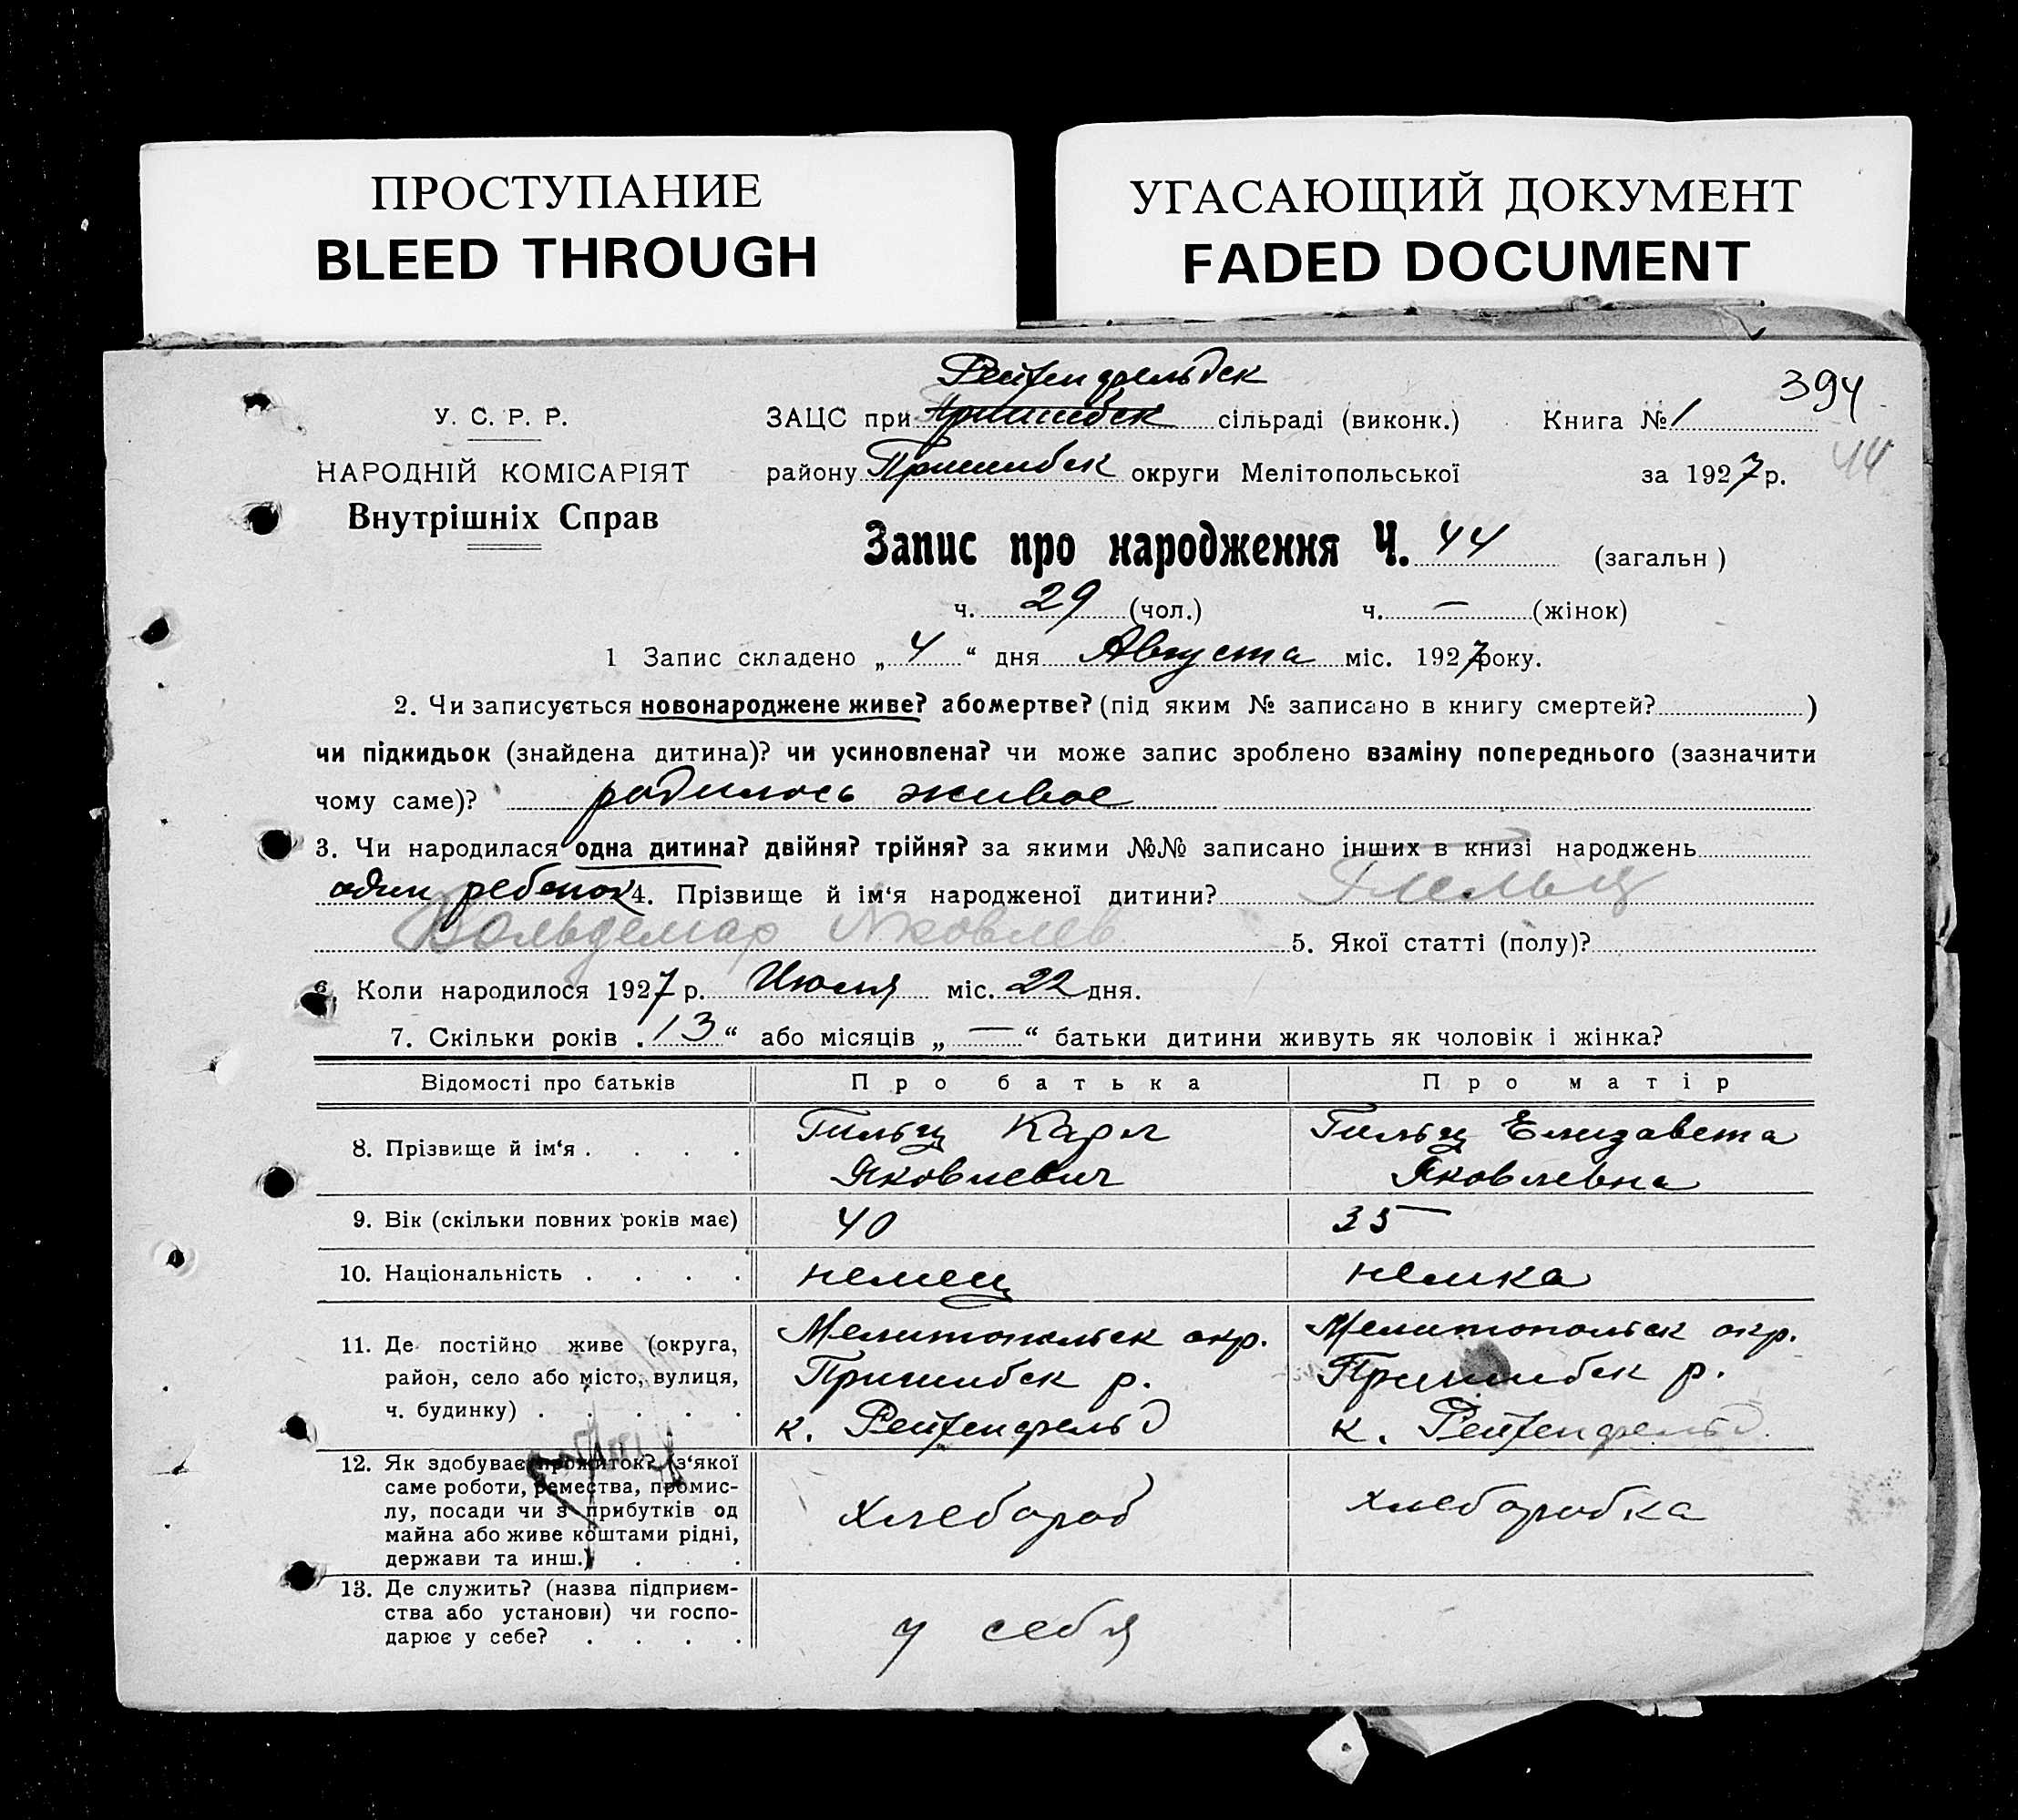 ПРОСТУПАНИЕ
BLEED THROUGH
УГАСАЮЩИЙ ДОКУМЕНТ
FADED DOCUMENT
394
44
У. С. Р. Р.
НАРОДНІЙ КОМІСАРІЯТ
Внутрішніх Справ
Рейхенфельдск
ЗАЦС при Пришибск сільраді (виконк.) Книга № 1
району Пришибск округи Мелітопольської за 1927 р.
Запис про народження Ч. 44 (загальн)
ч. 29 (чол.) ч. — (жінок)
1 Запис складено „4“ дня Августа міс. 1927 року.
2. Чи записується новонароджене живе? або мертве? (під яким № записано в книгу смертей? )
чи підкидьок (знайдена дитина)? чи усиновлена? чи може запис зроблено взаміну попереднього (зазначити
чому саме)? родилось живое
3. Чи народилася одна дитина? двійня? трійня? за якими №№ записано інших в книзі народжень
один ребенок 4. Прізвище й ім‘я народженої дитини? Гильц
Вольдемар Яковлев 5. Якої статті (полу)?
6. Коли народилося 1927 р. Июля міс. 22 дня.
7. Скільки років „13“ або місяців „—“ батьки дитини живуть як чоловік і жінка?
Відомості про батьків Про батька Про матір
8. Прізвище й ім‘я . . . . Гильц Карл Яковлевич Гильц Елизавета Яковлевна
9. Вік (скільки повних років має) 40 35
10. Національність . . . . немец немка
11. Де постійно живе (округа, Мелитопольск окр. Мелитопольск окр.
район, село або місто, вулиця, Пришибск р. Пришибск р.
ч. будинку) . . . . . к. Рейхенфельд к. Рейхенфельд
12. Як здобуває прожиток? (з‘якої
саме роботи, ремества, промис-
лу, посади чи з прибутків од хлебороб хлеборобка
майна або живе коштами рідні,
держави та инш.) . . .
13. Де служить? (назва підприєм-
ства або установи) чи госпо- у себя
дарює у себе? . . . .